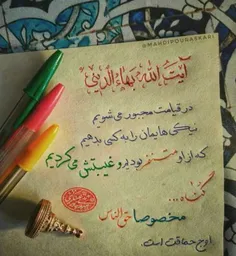 @MAHDIPOURASKARI
آیت الله بهاءالدینی
در قیامت مجبور می شویم
نیکی هایمان را به کسی بدهیم
که از او متنفر بودیم و غیبتش می کردیم
گناه...
مخصوصا حق الناس
اوج حماقت است.